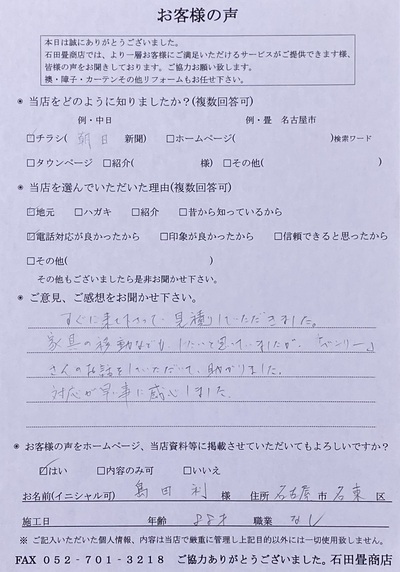 お客様の声
本日は誠にありがとうございました。
石田畳商店では、より一層お客様にご満足いただけるサービスがご提供できます様、
皆様の声をお聞きしております。ご協力お願い致します。
襖・障子・カーテンその他リフォームもお任せ下さい。
＊ 当店をどのように知りましたか？(複数回答可)
例・中日 例・畳 名古屋市
☑チラシ( 朝日 新聞) □ホームページ( )検索ワード
□タウンページ □紹介( 様) □その他( )
＊ 当店を選んでいただいた理由(複数回答可)
☑地元 □ハガキ □紹介 □昔から知っているから
☑電話対応が良かったから □印象が良かったから □信頼できると思ったから
□その他( )
その他もございましたら是非お聞かせ下さい。
＊ ご意見、ご感想をお聞かせ下さい。
すぐに来て下さって、見積りしていただきました。
家具の移動なども、したいと思っていましたが、「ベンリー」
さんのお話をしていただいて、助かりました。
対応が見事に感心しました。
＊ お客様の声をホームページ、当店資料等に掲載させていただいてもよろしいですか？
☑はい □内容のみ可 □いいえ
お名前(イニシャル可) 島田 利 様 住所 名古屋 市 名東 区
施工日 年齢 88才 職業 なし
※ ご記入いただいた個人情報、内容は当店で厳重に管理し上記目的以外には一切使用致しません。
FAX 052-701-3218 ご協力ありがとうございました。石田畳商店